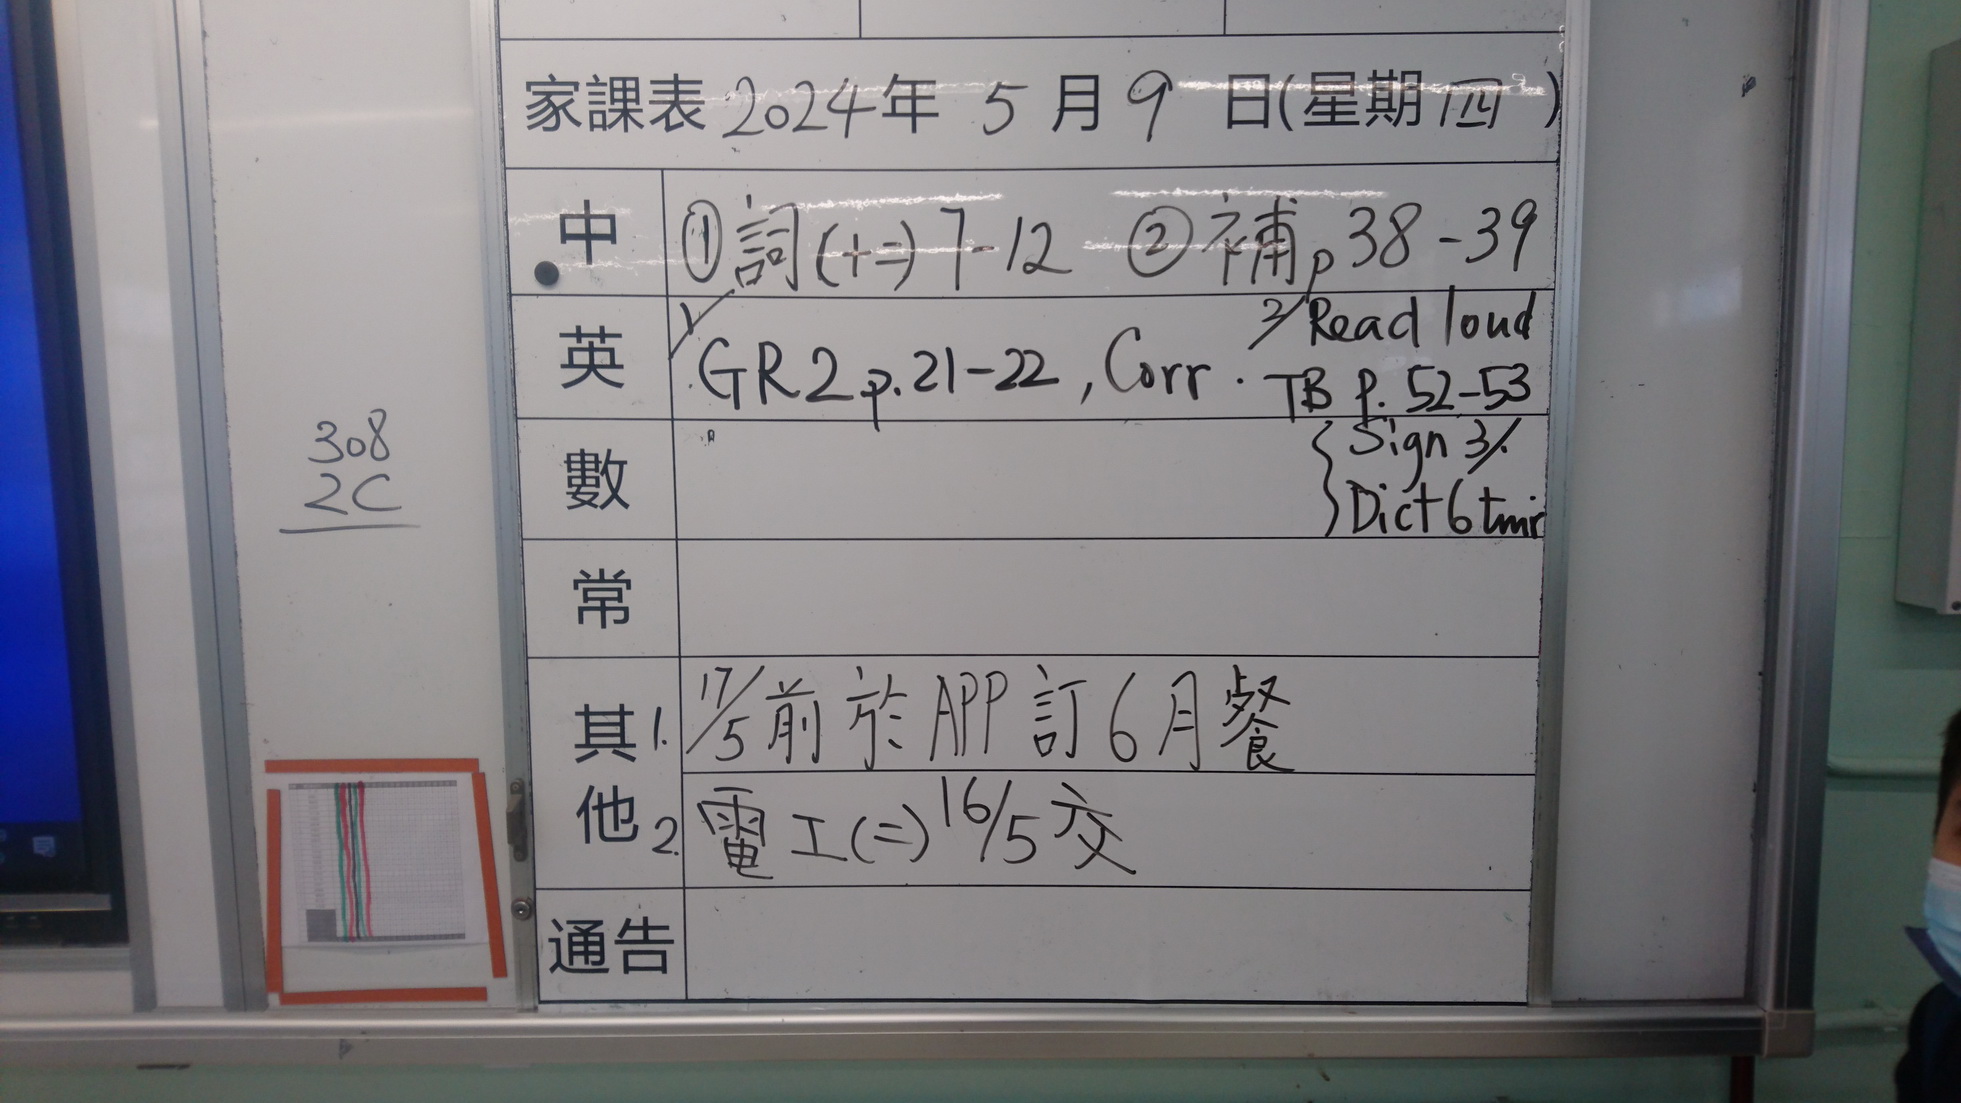 家課表 2024年 5 月 9 日(星期四)
中 ①詞(十二)7-12 ②補p38-39
英 1/ GR2 p.21-22, Corr. 2/ Read loud
TB p. 52-53
數 {Sign 3/.
Dict 6 tmr
常
其他 1. 17/5前於APP訂6月餐
2. 電工(二)16/5交
通告
308
2C